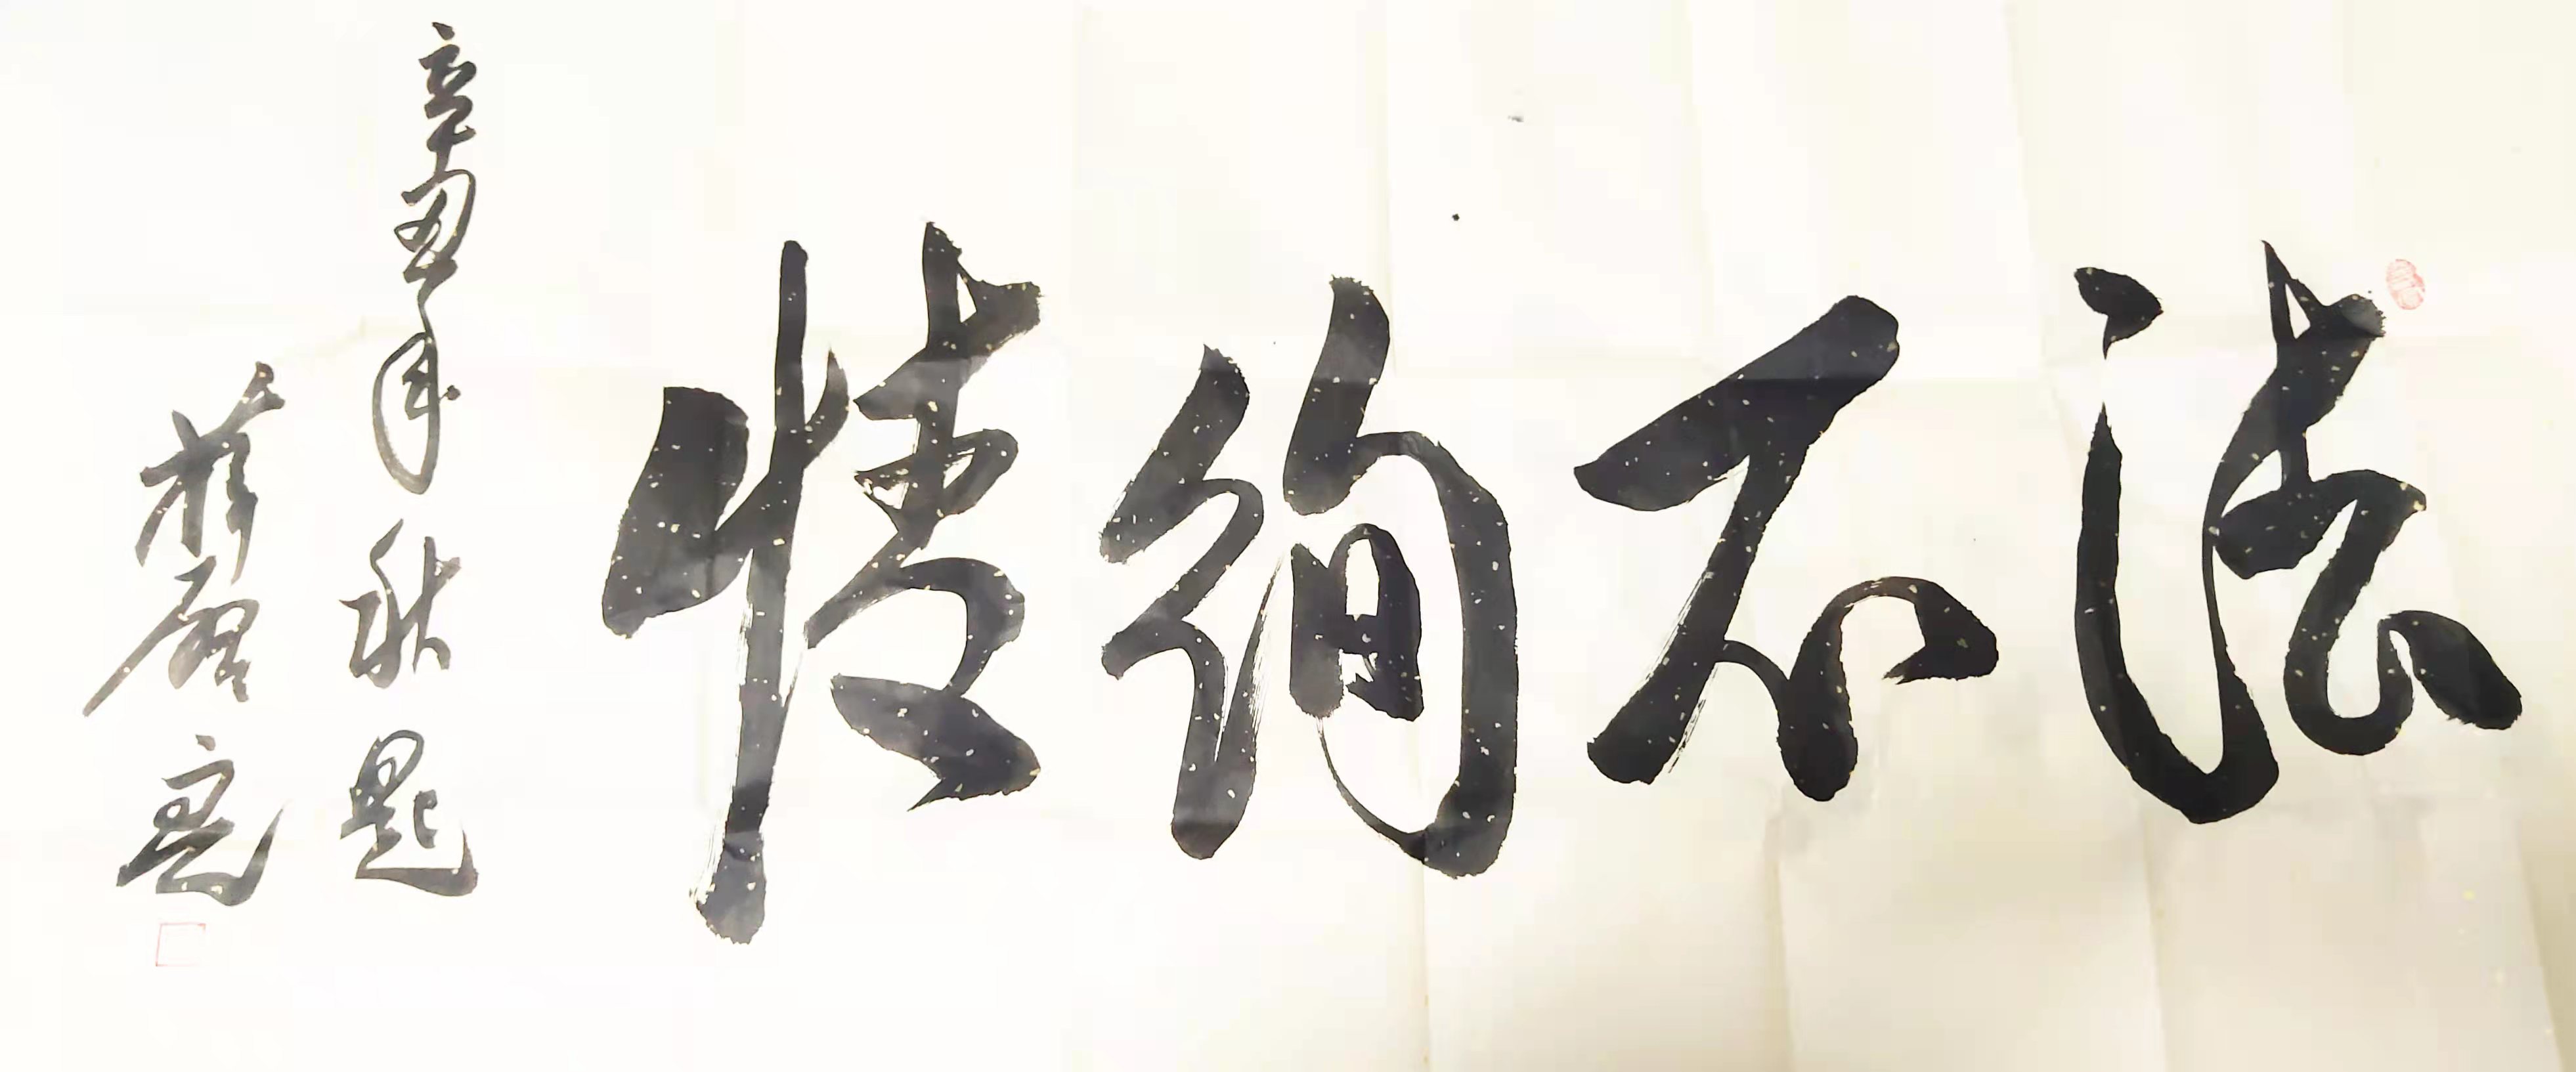 法不徇情
辛丑年秋題
亮